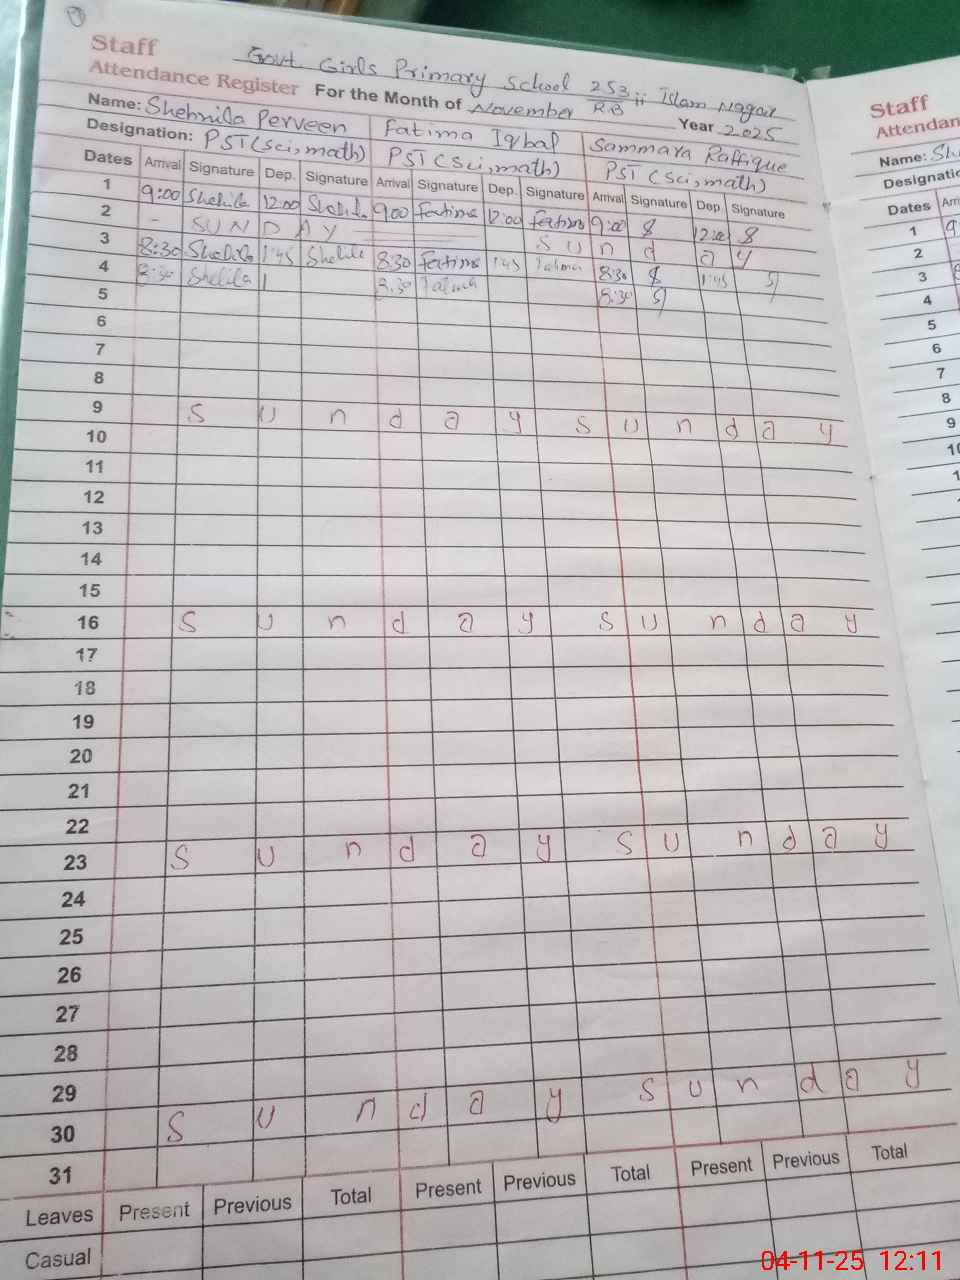 Staff
Govt Girls Primary School 253 ii Islam Nagar
R.B
Attendance Register For the Month of November Year 2025
Name: Shehnila Perveen Fatima Iqbal Sammara Raffique
Designation: PST (sci, math) PST (Sci, math) PST (Sci, math)
Dates Arrival Signature Dep. Signature Arrival Signature Dep. Signature Arrival Signature Dep. Signature
1 9:00 Shehila 12:00 Shehila 9:00 Fatima 12:00 Fatima 9:00 12:00
2 - SUNDAY Sunday
3 8:30 Shehila 1:45 Shehila 8:30 Fatima 1:45 Fatima 8:30 1:45
4 8:30 Shehila 1 8:30 Fatima 8:30
5
6
7
8
9 Sunday Sunday
10
11
12
13
14
15
16 Sunday Sunday
17
18
19
20
21
22
23 Sunday Sunday
24
25
26
27
28
29
30 Sunday Sunday
31
Leaves Present Previous Total Present Previous Total Present Previous Total
Casual
Staff
Attendan
Name: Sh
Designatio
Dates
1 9
2
3
4
5
6
7
8
9
04-11-25 12:11